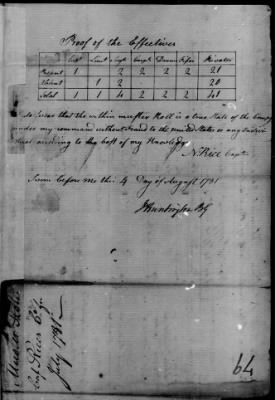 Proof of the Effectives
Capt Lieut Serjts Corpls Drum Fifer Privates
Present 1 2 2 2 2 21
Absent 1 2 20
Total 1 1 4 2 2 2 41
I do swear that the within muster Roll is a true State of the Company
under my command without fraud to the united States or any Individ
ual according to the best of my Knowledge
N. Rice Capt
Sworn before me this 4 Day of August 1781
J Huntington BG
Muster Roll
Capt Rices Coy
July 1781
64